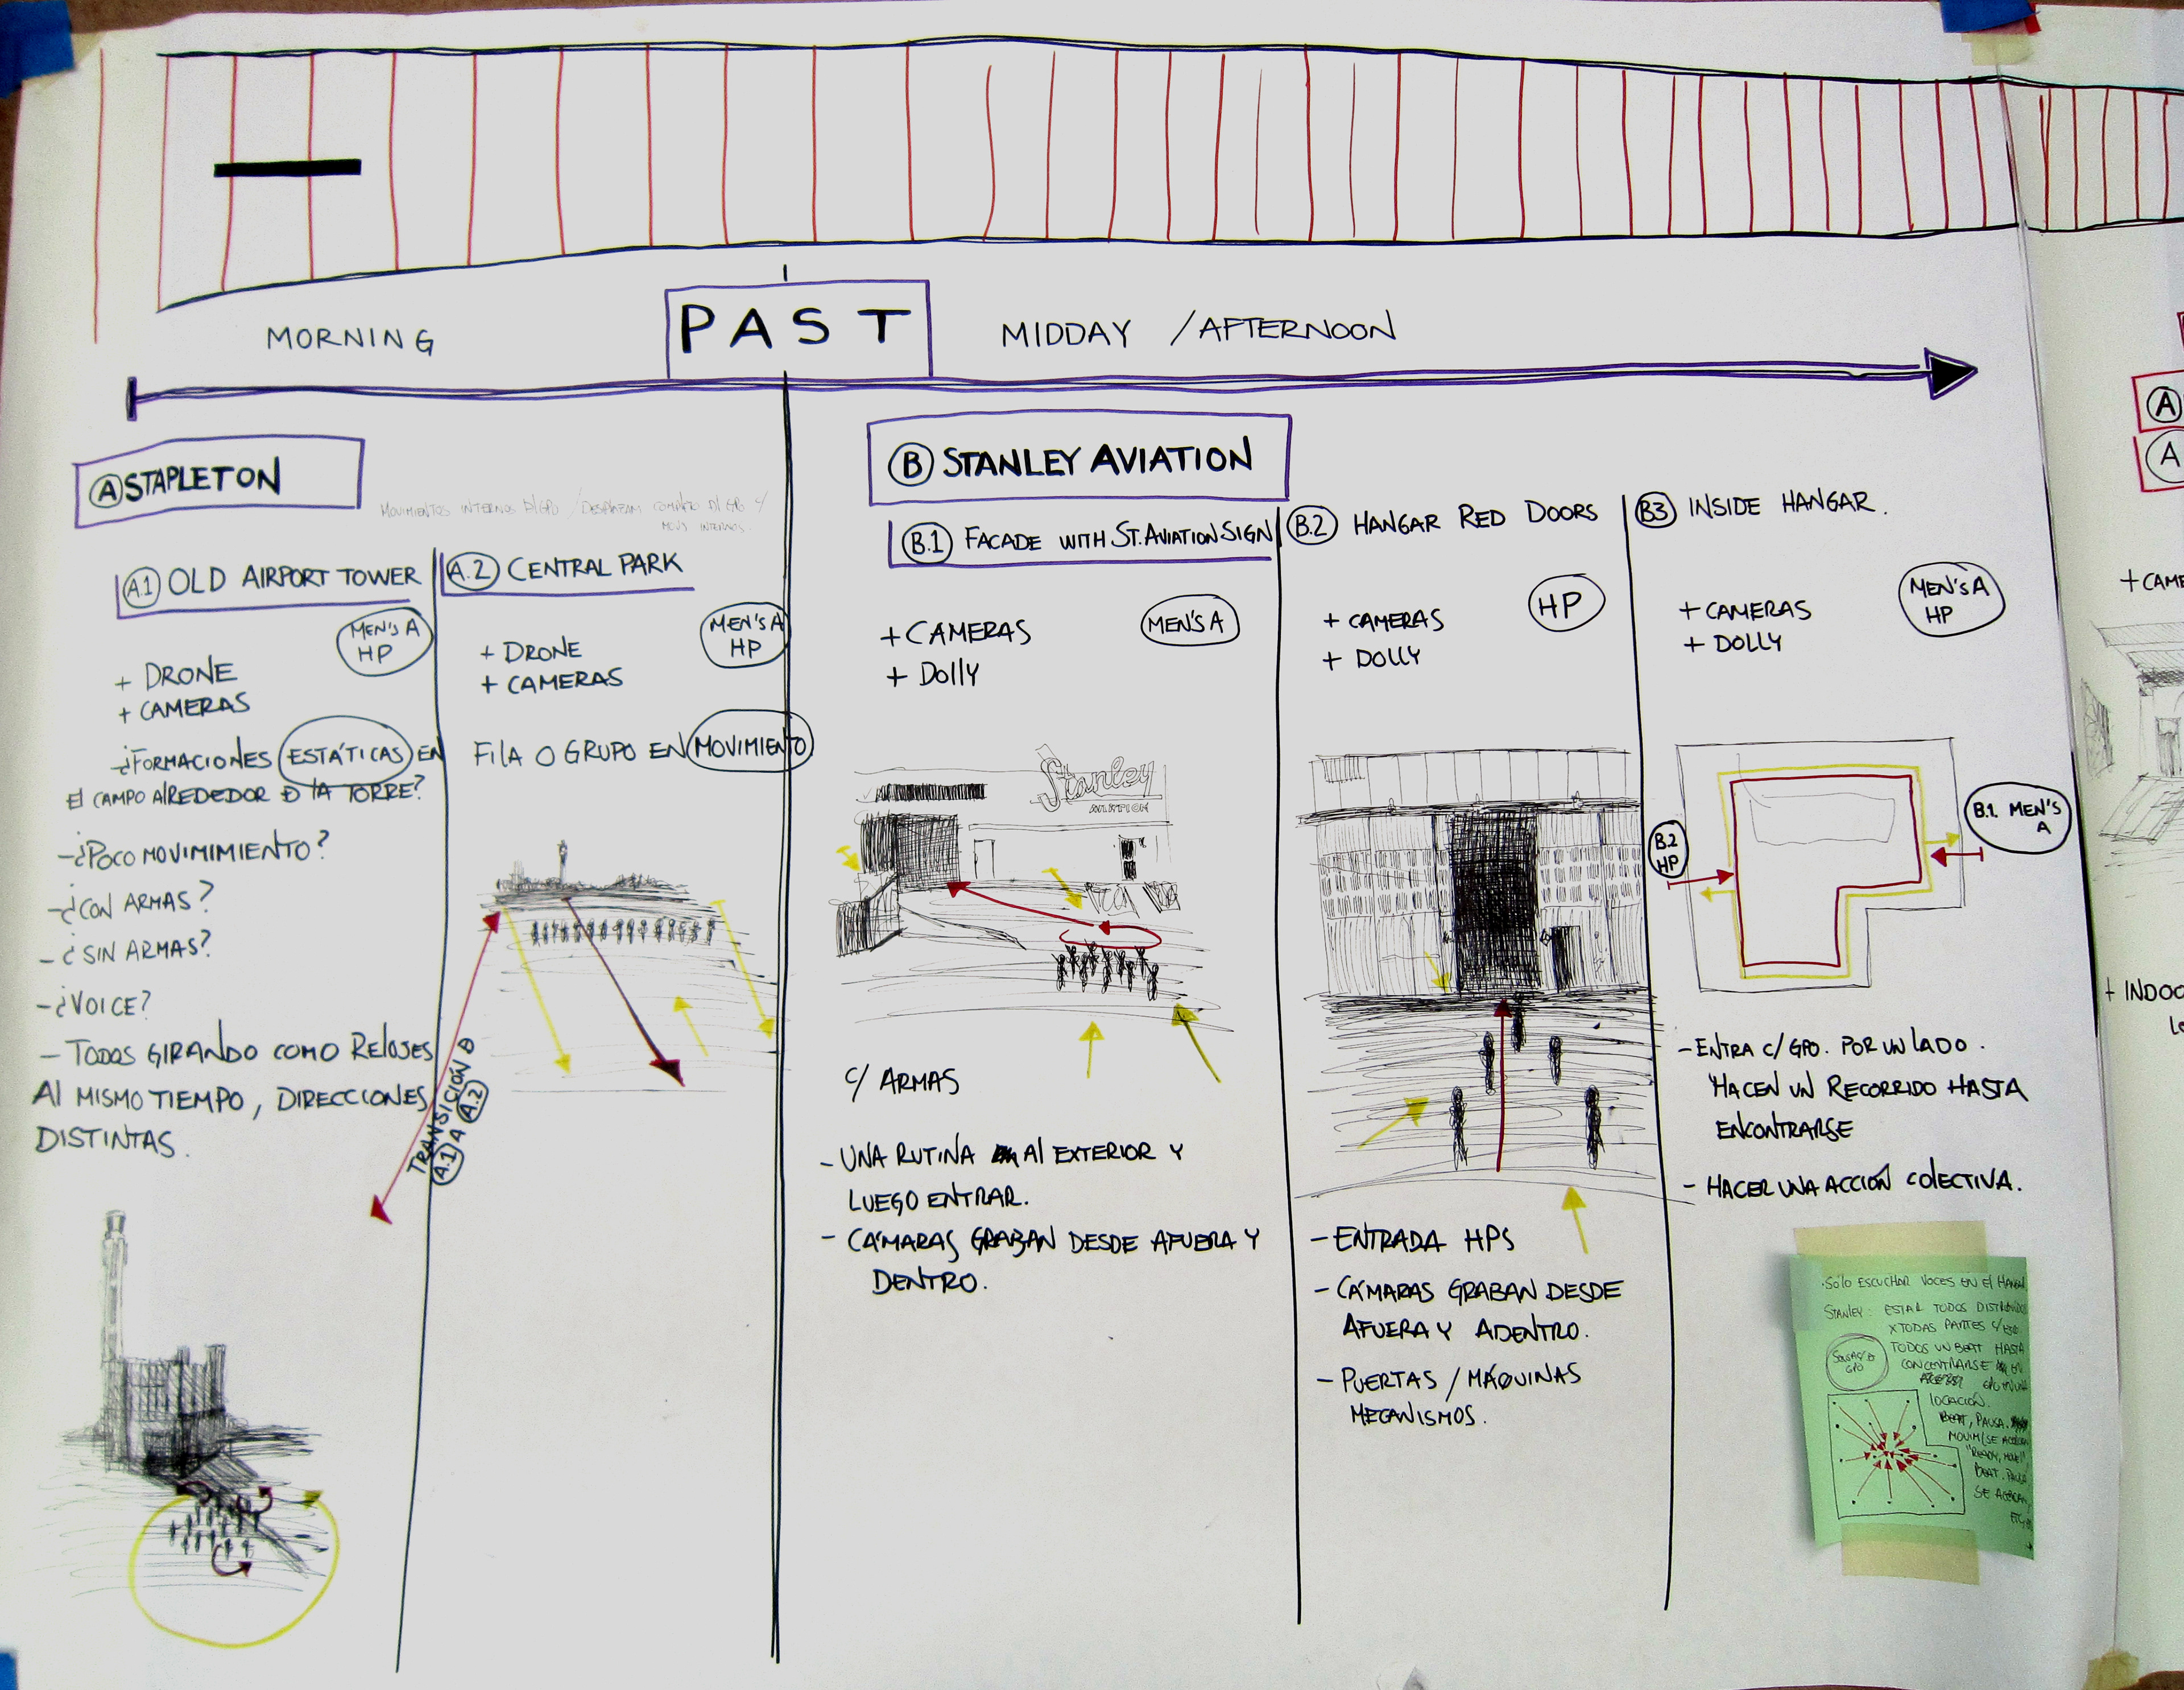 MORNING
PAST
MIDDAY / AFTERNOON
A STAPLETON
MOVIMIENTOS INTERNOS D/GPO / DESPLAZAM COMPLETO D/GPO Y
MOVS INTERNOS.
A.1 OLD AIRPORT TOWER
MEN'S A
HP
+ DRONE
+ CAMERAS
-¿FORMACIONES ESTÁTICAS EN
El CAMPO AlREDEDOR D lA TORRE?
-¿POCO MOVIMIMIENTO?
-¿CON ARMAS?
-¿SIN ARMAS?
-¿VOICE?
- TODOS GIRANDO COMO RELOJES
Al MISMO TIEMPO, DIRECCIONES
DISTINTAS.
TRANSICIÓN D
A.1 A A.2
A.2 CENTRAL PARK
MEN'S A
HP
+ DRONE
+ CAMERAS
FILA O GRUPO EN MOVIMIENTO
B STANLEY AVIATION
B.1 FACADE WITH ST. AVIATION SIGN
+ CAMERAS
+ DOlly
MEN'S A
Stanley
AVIATION
C/ ARMAS
- UNA RUTINA Al EXTERIOR Y
LUEGO ENTRAR.
- CÁMARAS GRABAN DESDE AFUERA Y
DENTRO.
B.2 HANGAR RED DOORS
+ CAMERAS
+ DOLLY
HP
- ENTRADA HPS
- CÁMARAS GRABAN DESDE
AFUERA Y ADENTRO.
- PUERTAS / MÁQUINAS
MECANISMOS.
B3 INSIDE HANGAR.
+ CAMERAS
+ DOLLY
MEN'S A
HP
B.2
HP
B.1. MEN'S
A
- ENTRA C/ GPO. POR UN LADO.
HACEN UN RECORRIDO HASTA
ENCONTRARSE
- HACER UNA ACCIÓN COlECTIVA.
·SÓlO ESCUCHAR VOCES EN El HANGAR
STANLEY: ESTAR TODOS DISTRIBUIDOS
X TODAS PARTES
TODOS UN BEAT HASTA
CONCENTRARSE EN
LOCACIÓN.
BEAT, PAUSA.
MOVIM/SE ACERCAN
"READY, MOVE!"
BEAT. PAUSA
SE ACERCAN,
ETC,
A
A
+ CAME
+ INDOO